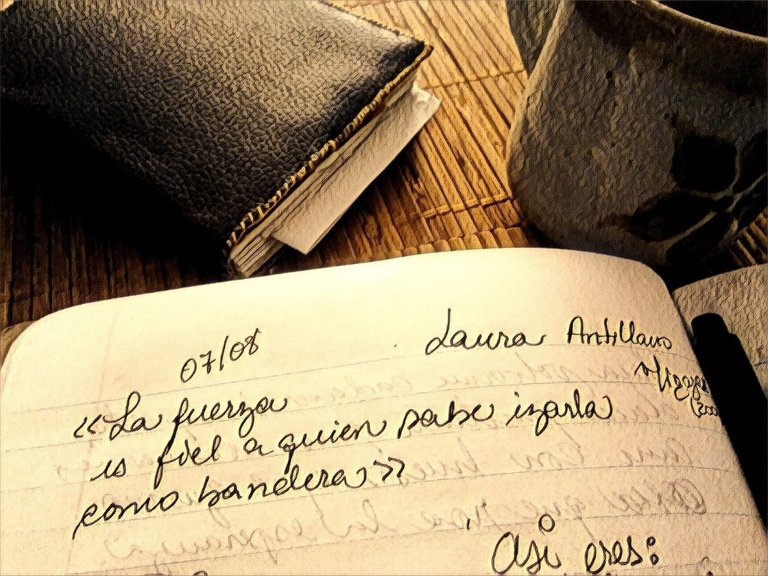 07/08 Laura Antillano
«La fuerza
es fiel a quien sabe izarla
como bandera»
Así eres: